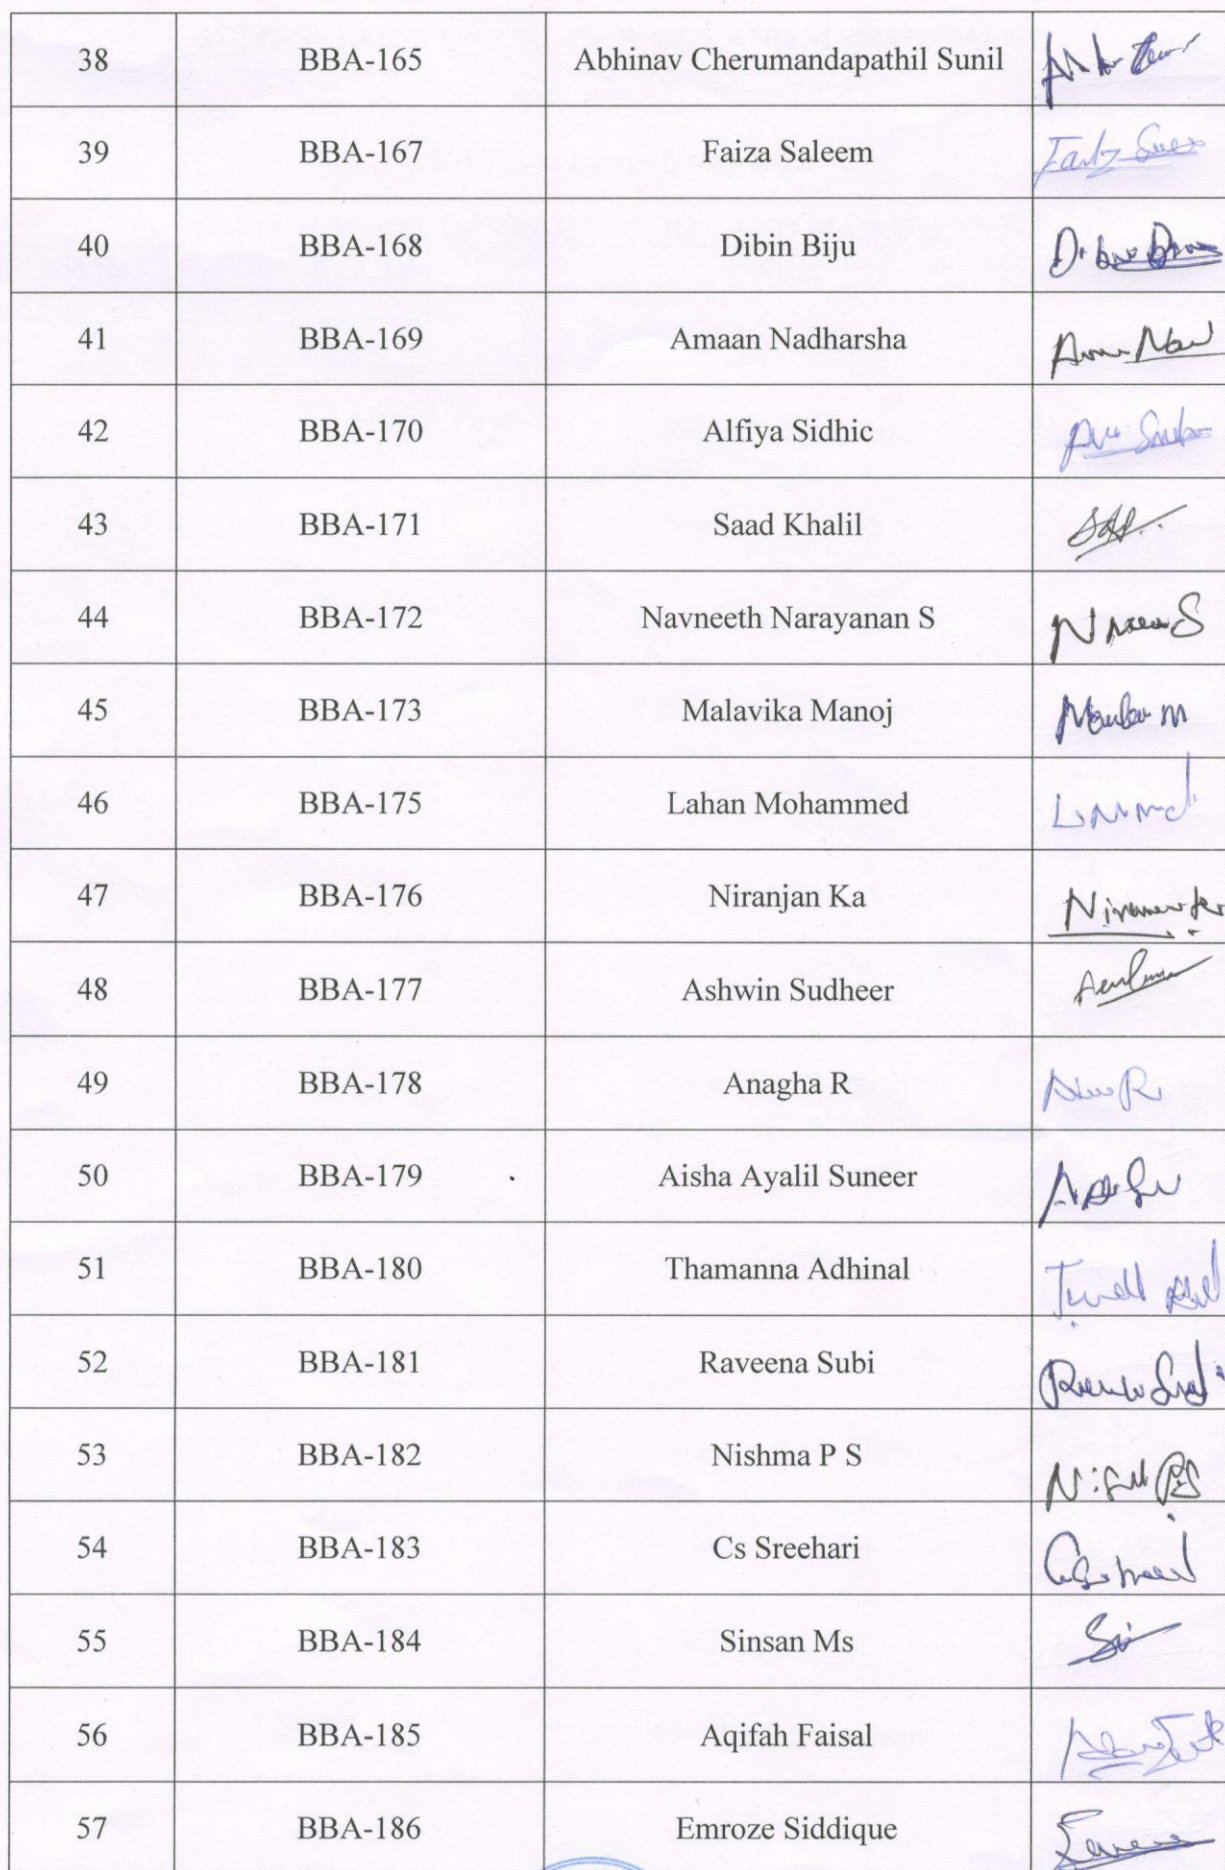 38 BBA-165 Abhinav Cherumandapathil Sunil
39 BBA-167 Faiza Saleem
40 BBA-168 Dibin Biju
41 BBA-169 Amaan Nadharsha
42 BBA-170 Alfiya Sidhic
43 BBA-171 Saad Khalil
44 BBA-172 Navneeth Narayanan S
45 BBA-173 Malavika Manoj
46 BBA-175 Lahan Mohammed
47 BBA-176 Niranjan Ka
48 BBA-177 Ashwin Sudheer
49 BBA-178 Anagha R
50 BBA-179 Aisha Ayalil Suneer
51 BBA-180 Thamanna Adhinal
52 BBA-181 Raveena Subi
53 BBA-182 Nishma P S
54 BBA-183 Cs Sreehari
55 BBA-184 Sinsan Ms
56 BBA-185 Aqifah Faisal
57 BBA-186 Emroze Siddique